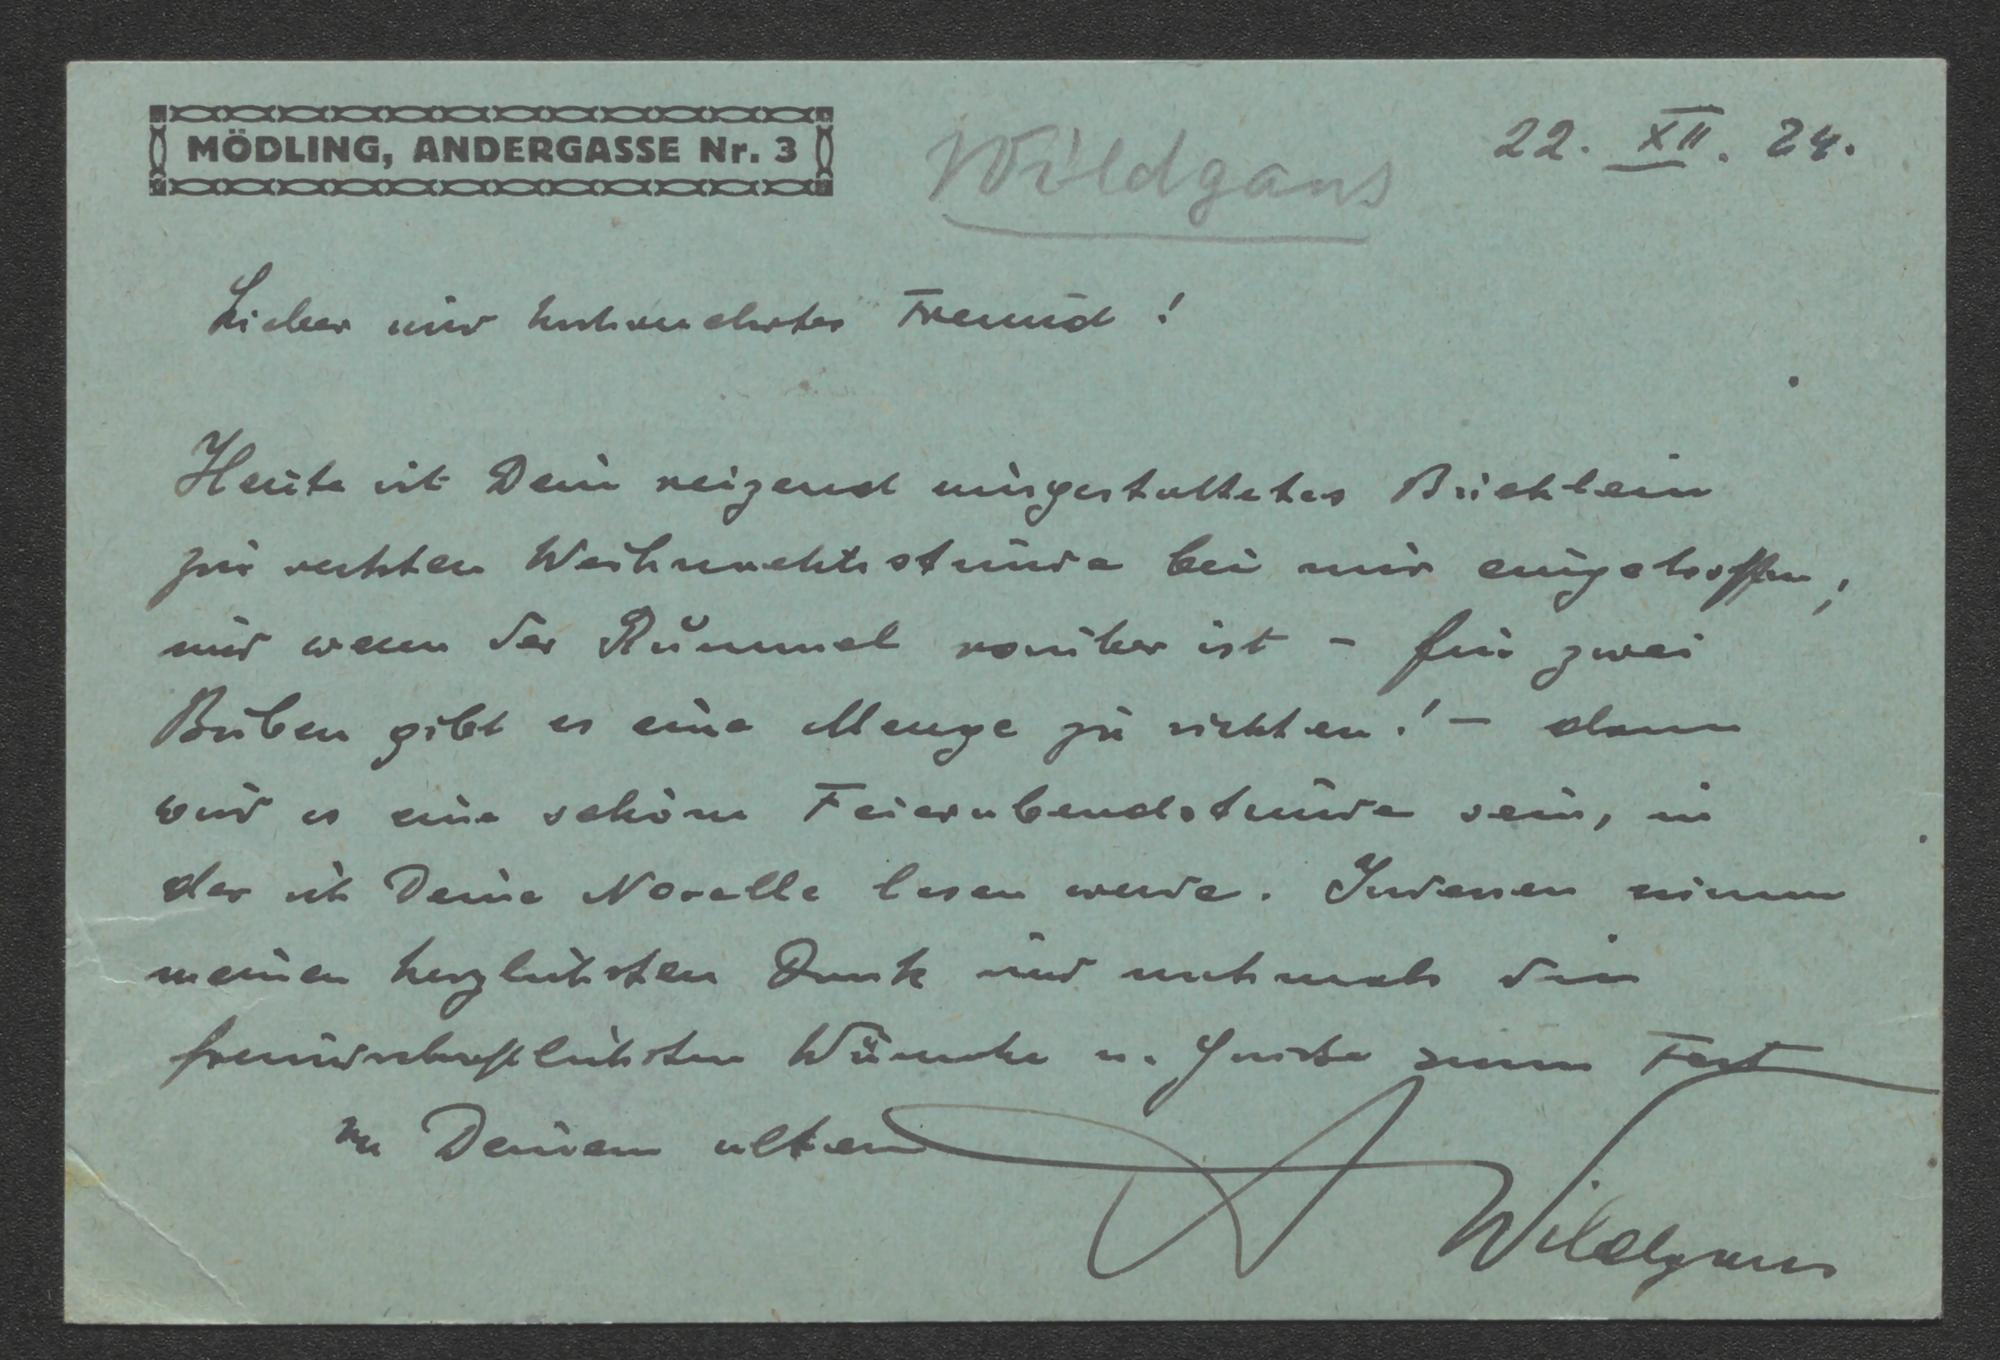 MÖDLING, ANDERGASSE Nr. 3
Wildgans
22. XII. 24.
Lieber und hochverehrter Freund!
Heute ist Dein reizend ausgestattetes Büchlein
zur rechten Weihnachtsstunde bei mir eingetroffen,
und wenn der Rummel vorüber ist – für zwei
Buben gibt es eine Menge zu richten! – dann
wird es eine schöne Feierabendstunde sein, in
der ich Deine Novelle lesen werde. Indessen nimm
meinen herzlichsten Dank und nochmals die
freundschaftlichsten Wünsche u. Grüße zum Fest
von Deinem alten
A Wildgans